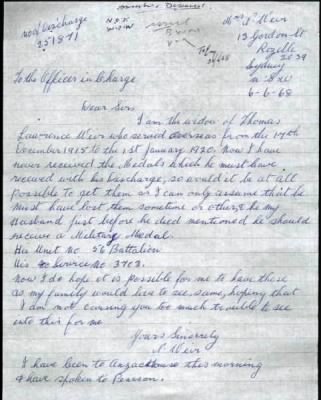 Member Deceased
Mrs P Weir
not discharge
13 Gordon St
251871
Rozelle
2039
Sydney
NSW
6-6-68
To the Officer in Charge
Dear Sir
I am the widow of Thomas
Lawrence Weir who served overseas from the 17th
December 1915 to the 1st January 1920. Now I have
never received the Medals which he must have
received with his discharge, so would it be at all
possible to get them as I can only assume that he
must have lost them sometime or other, & he my
Husband just before he died mentioned he should
receive a Military Medal.
His Unit No. 56 Battalion
His Service No 3703.
Now I do hope it is possible for me to have these
as my family would love to see same, hoping that
I am not causing you too much trouble to see
into this for me
Yours Sincerely
Weir
I have been to Anzac House this morning
& have spoken to Pearson.